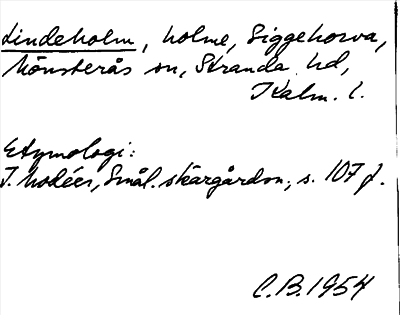 Lindeholm, holme, Siggehorva,
Mönsterås sn, Stranda hd,
Kalm. l.
Etymologi:
I. Modéer, Smål. skärgården, s. 107 f.
C.B. 1954